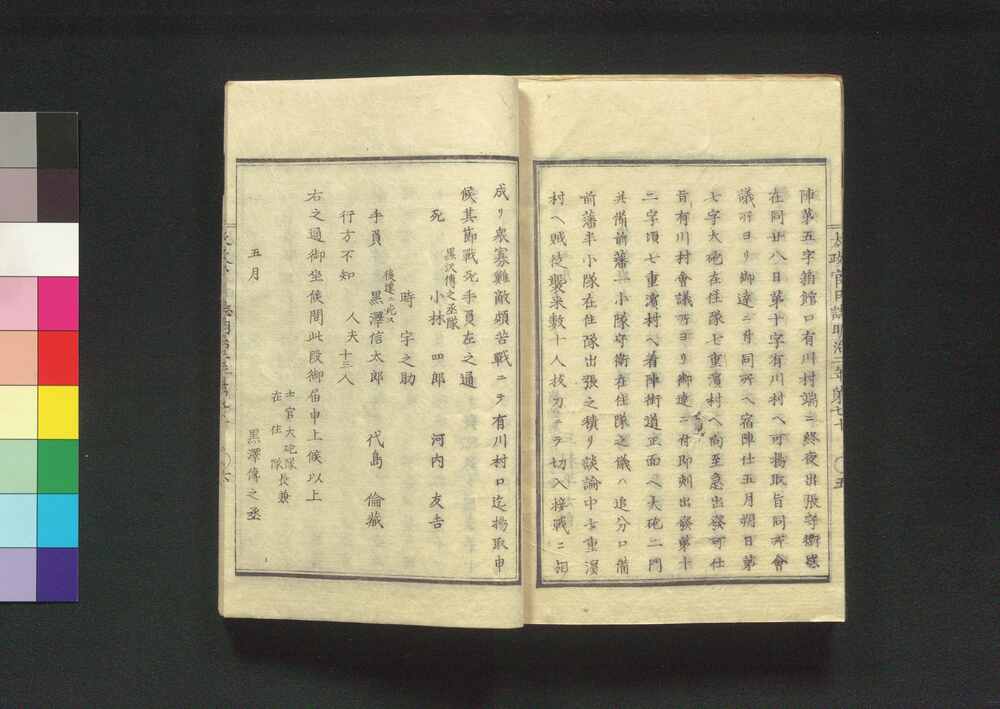 陣第五字箱館口有川村端ニ終夜出張守衛罷
在同廿八日第十字有川村へ可揚取旨同所會
議所ヨリ御達ニ付同所へ宿陣仕五月朔日第
七字大砲在住隊七重濱村へ向至急出發可仕
旨有川村會議所ヨリ御達ニ付即刻出發第十
二字頃七重濱村へ着陣街道正面へ大砲二門
共備前藩一小隊守衛在住隊之儀ハ追分口備
前藩半小隊在住隊出張之積リ談論中七重濱
村へ賊徒襲来数十人拔刀ニテ切入接戰ニ相
太政官日誌明治二年第七十
五
成リ衆寡難敵頗苦戰ニテ有川村口迄揚取申
候其節戰死手負左之通
黒沢傳之丞隊
死 小林 四郎 河内 友吉
時 字之助
後遂ニ死ス
手負 黒澤信太郎 代島 倫藏
行方不知 人夫 十三人
右之通御坐候間此段御届申上候以上
士官大砲隊長兼
在住隊
五月 黒澤傳之丞
六